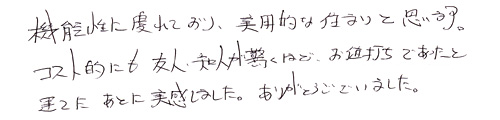 機能性に優れており、実用的な住まいと思います。
コスト的にも友人・知人が驚くほど、お値打ちであったと
建てたあとに実感しました。ありがとうございました。